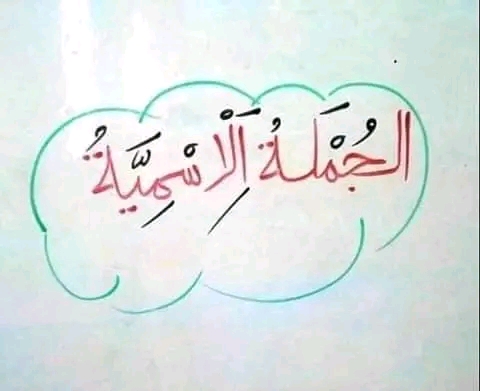 الجُمْلَةُ اَلْاِسْمِيَّةُ